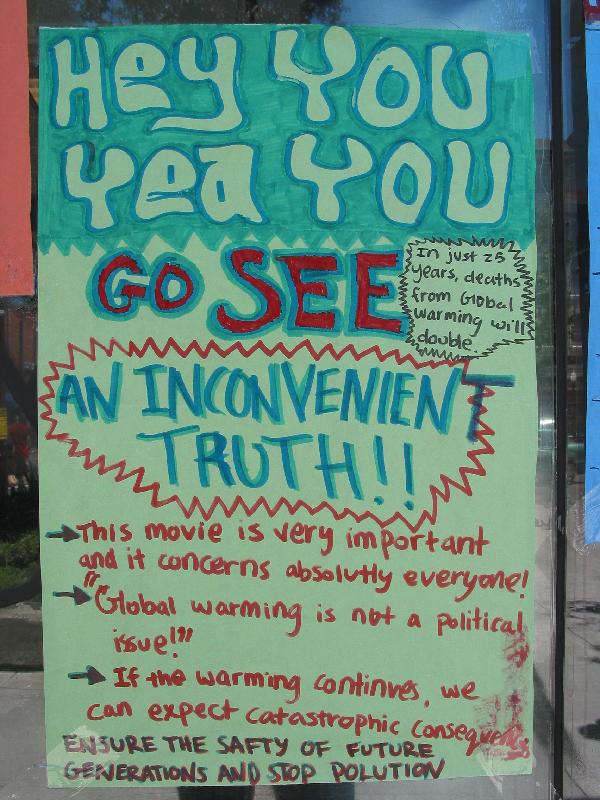 Hey YOU
Yea YOU
GO SEE
In just 25
years, deaths
from Global
warming will
double.
AN INCONVENIENT
TRUTH!!
This movie is very important
and it concerns absolutly everyone!
"Global warming is not a political
issue!"
If the warming continves, we
can expect catastrophic consequences
ENSURE THE SAFTY OF FUTURE
GENERATIONS AND STOP POLUTION